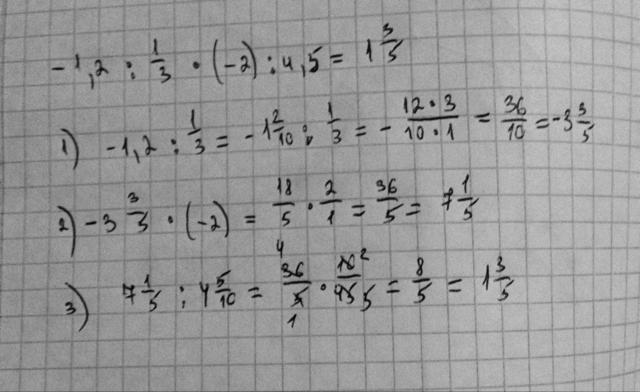 -1,2 : 1/3 · (-2) : 4,5 = 1 3/5
1) -1,2 : 1/3 = -1 2/10 : 1/3 = - 12·3/10·1 = 36/10 = -3 3/5
2) -3 3/5 · (-2) = 18/5 · 2/1 = 36/5 = 7 1/5
3) 7 1/5 : 4 5/10 = 36 4/5 1 · 10 2/45 5 = 8/5 = 1 3/5